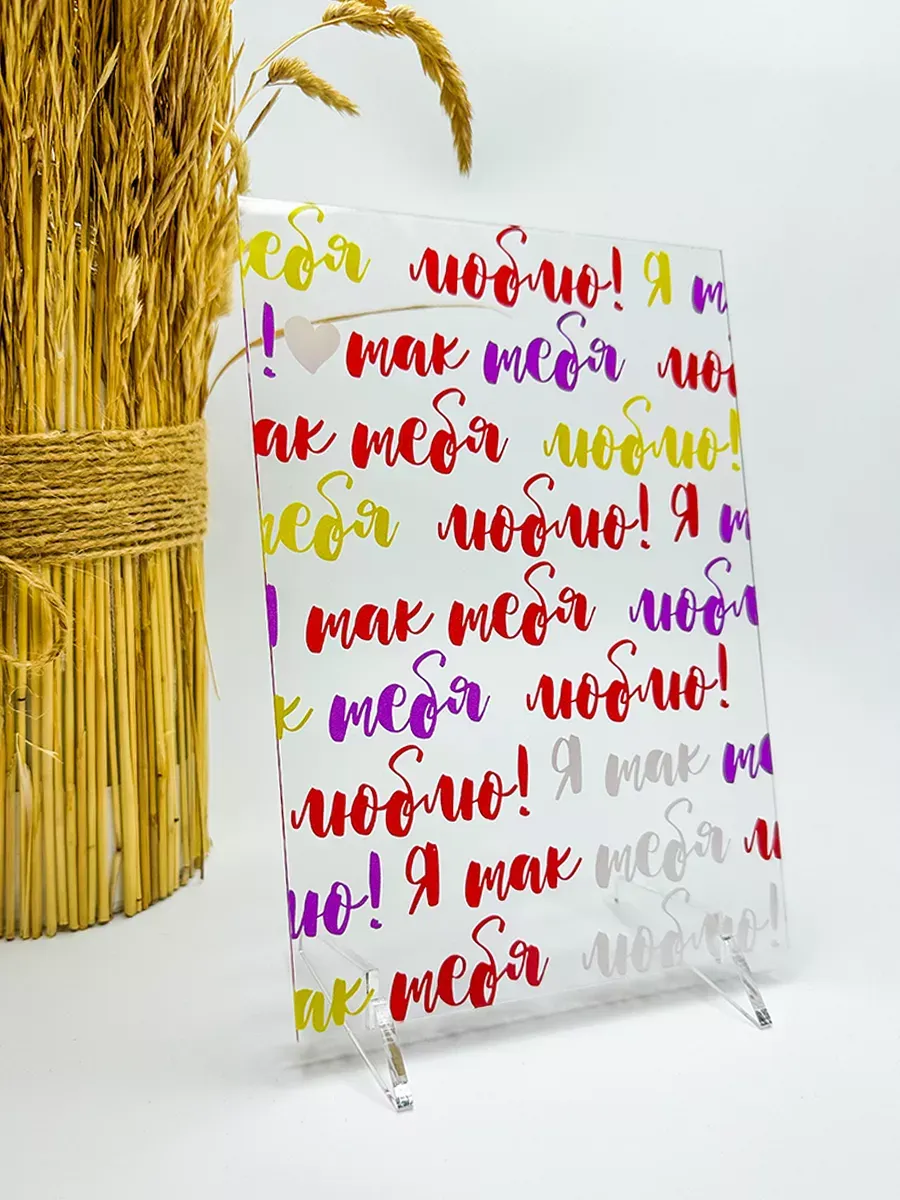 тебя люблю! Я т
! так тебя лю
ак тебя люблю!
тебя люблю! Я т
так тебя любл
к тебя люблю!
люблю! Я так те
лю! Я так тебя л
ак тебя люблю!